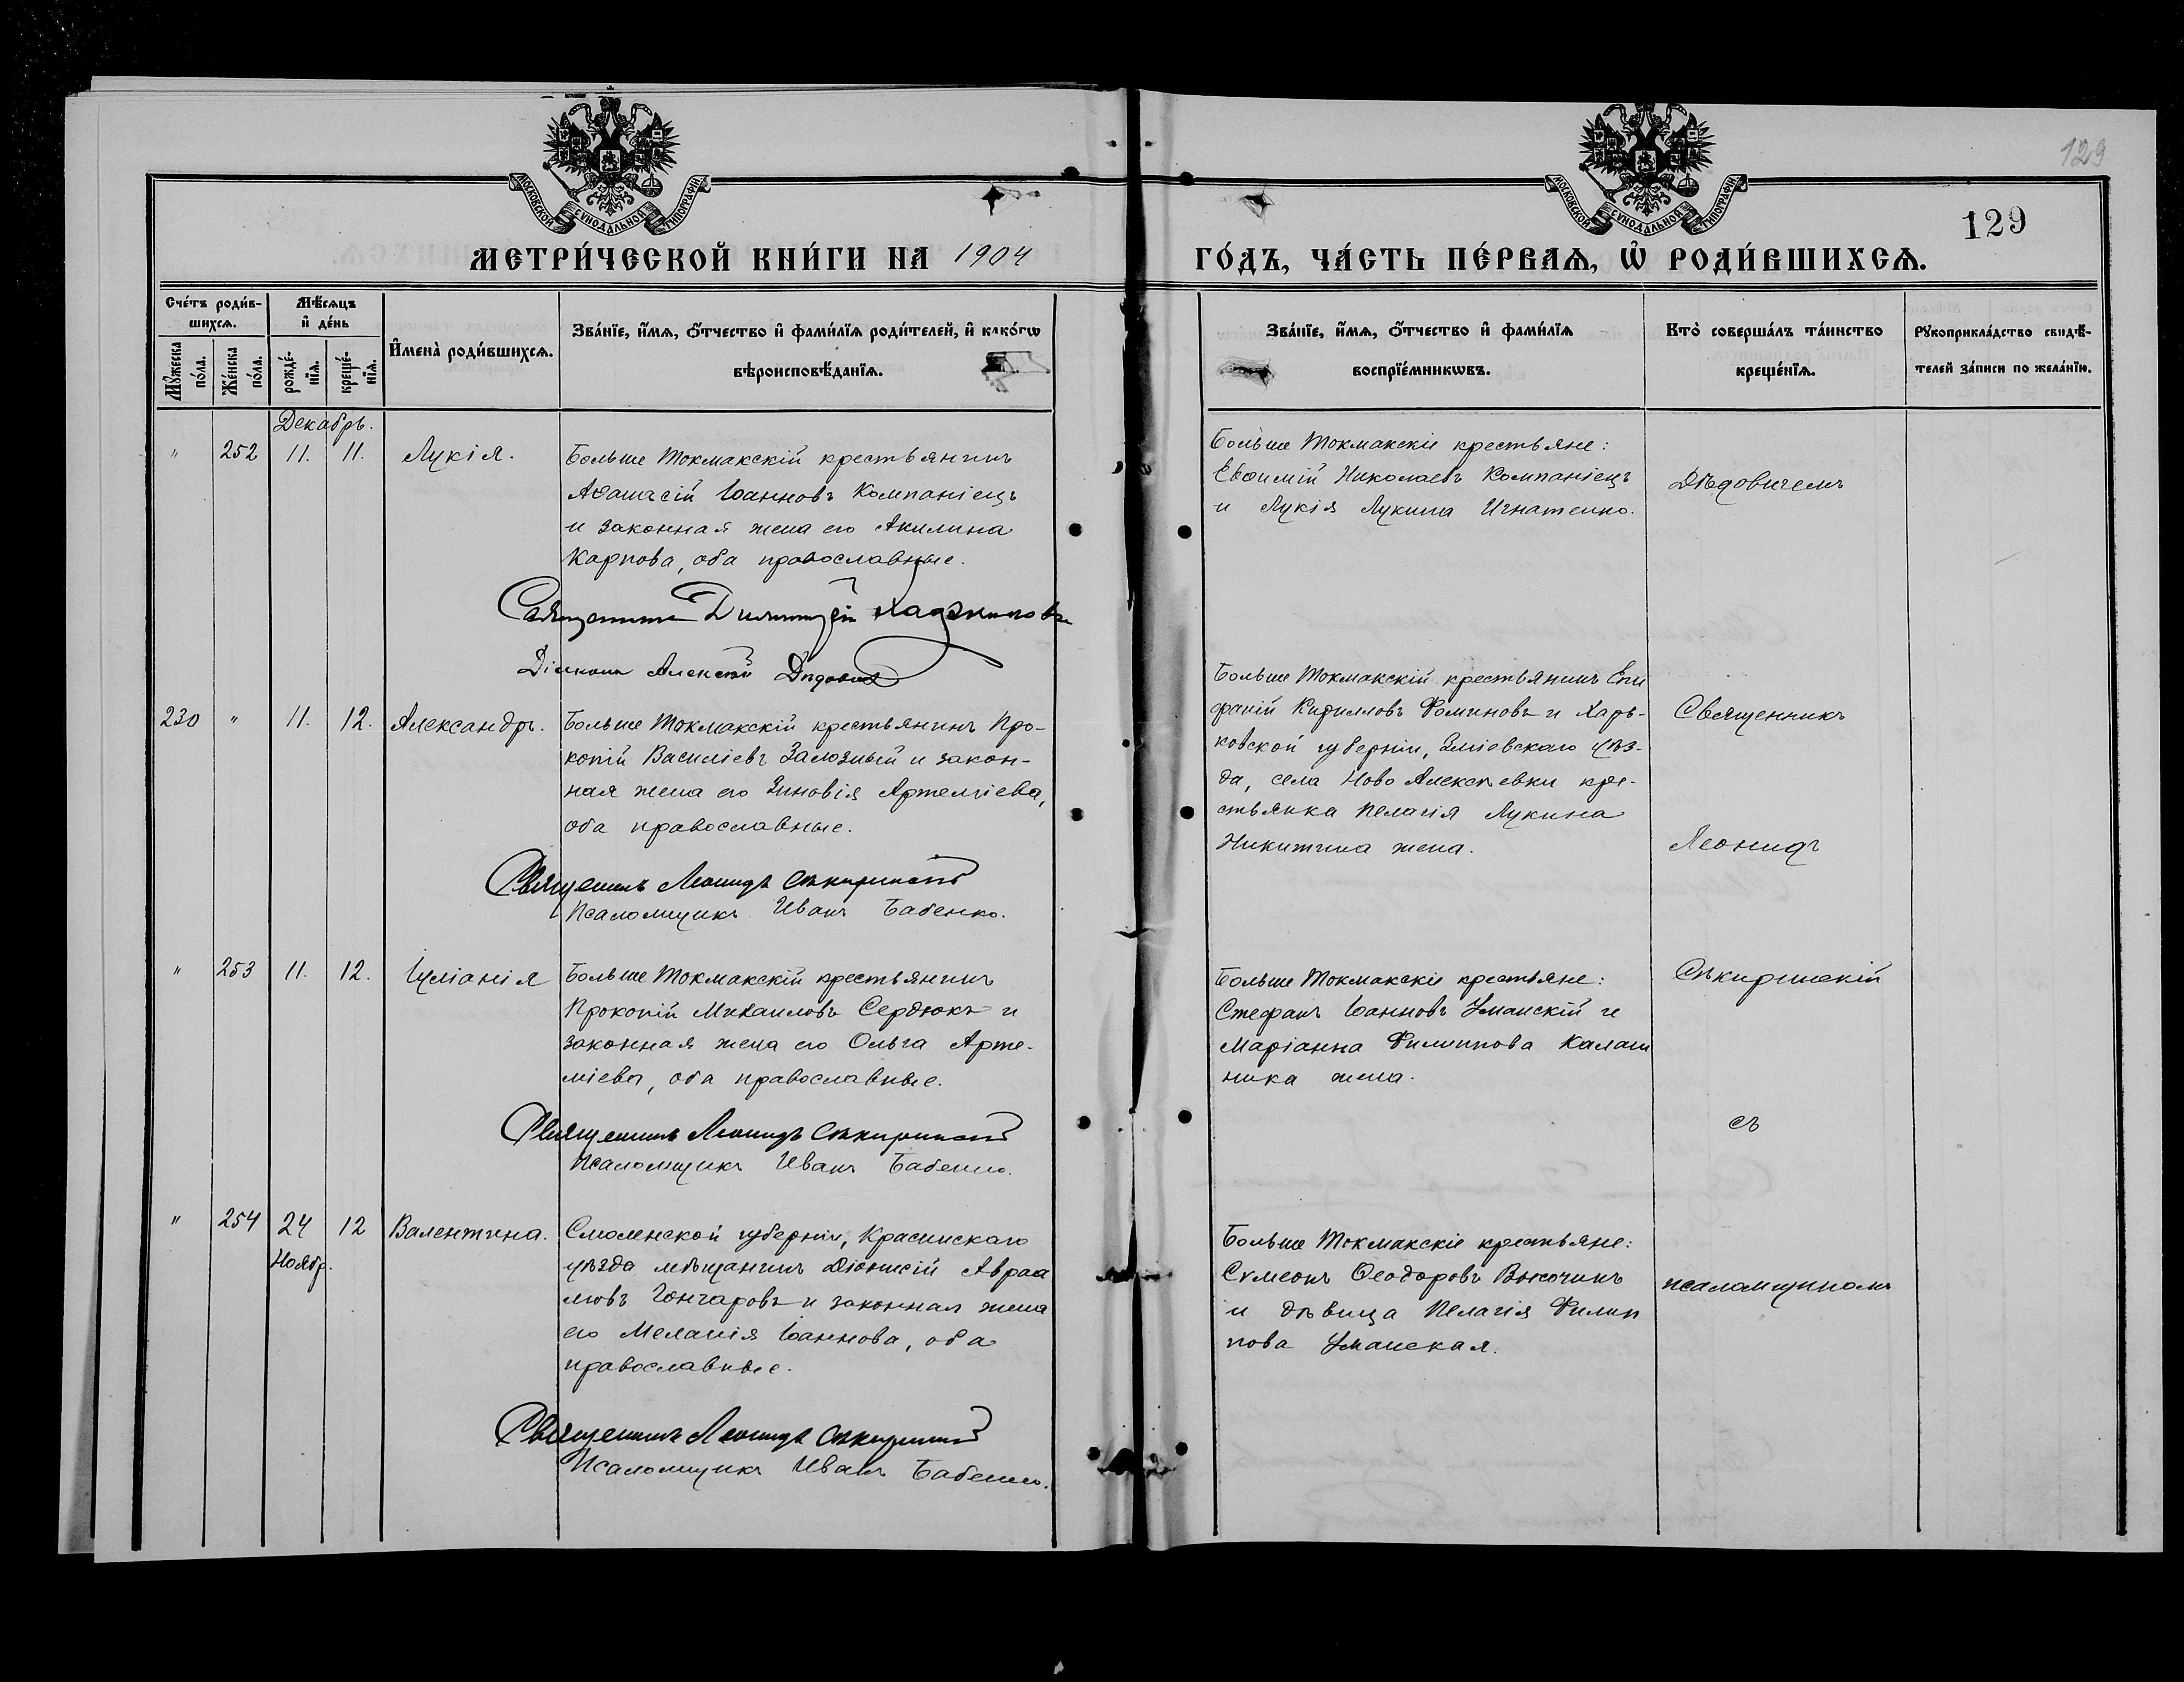 129
МОСКОВСКОЙ СУНОДАЛЬНОЙ ТИПОГРАФІИ
МОСКОВСКОЙ СУНОДАЛЬНОЙ ТИПОГРАФІИ
129
МЕТРИ́ЧЕСКОЙ КНИ́ГИ НА 1904
ГО́ДЪ, ЧА́СТЬ ПЕ́РВАѦ, Ѡ҆ РОДИ́ВШИХСѦ.
Сче́тъ роди́в-
шихсѧ.
Мꙋ́жеска
по́ла.
Же́нска
по́ла.
Мѣ́сѧцъ
и҆ де́нь
рожде́-
нїѧ.
креще́-
нїѧ.
И҆мена̀ роди́вшихсѧ.
Зва́нїе, и҆́мѧ, ѻ҆́тчество и҆ фами́лїѧ роди́телей, и҆ како́гѡ
вѣроисповѣ́данїѧ.
Зва́нїе, и҆́мѧ, ѻ҆́тчество и҆ фами́лїѧ
воспрїе́мникѡвъ.
Кто̀ соверша́лъ та́инство
креще́нїѧ.
Рꙋкоприкла́дство свидѣ́-
телей за́писи по жела́нїю.
Декабрь.
" 252 11. 11. Лукія.
Больше Токмакскій крестьянинъ
Аѳанасій Іоанновъ Компаніецъ
и законная жена его Акилина
Карпова, оба православные.
Священникъ Димитрій
Діаконъ Алексѣй Дѣдовичъ
Больше Токмакскіе крестьяне:
Евѳимій Николаевъ Компаніецъ
и Лукія Лукина Игнатенко.
Дѣдовичемъ
230 " 11. 12. Александръ.
Больше Токмакскій крестьянинъ Про-
копій Василіевъ Залозный и закон-
ная жена его Зиновія Артеміева,
оба православные.
Священникъ Леонидъ Сѣкиринскій
Псаломщикъ Иванъ Бабенко.
Больше Токмакскій крестьянинъ Епи
фаній Кирилловъ Фоминовъ и Харь-
ковской губерніи, Зміевскаго уѣз-
да, села Ново Алексѣевки кре-
стьянка Пелагія Лукина
Никитина жена.
Священникъ
Леонидъ
" 253 11. 12. Іуліанія
Больше Токмакскій крестьянинъ
Прокопій Михаиловъ Сердюкъ и
законная жена его Ольга Арте-
міева, оба православные.
Священникъ Леонидъ Сѣкиринскій
Псаломщикъ Иванъ Бабенко.
Больше Токмакскіе крестьяне:
Стефанъ Іоанновъ Уманскій и
Маріанна Филиппова Калаш
ника жена.
Сѣкиринскій
съ
" 254 24 12 Валентина.
Ноябр.
Смоленской губерніи, Краснинскаго
уѣзда мѣщанинъ Діонисій Авраа
мовъ Гончаровъ и законная жена
его Меланія Іоаннова, оба
православные.
Священникъ Леонидъ Сѣкиринскій
Псаломщикъ Иванъ Бабенко.
Больше Токмакскіе крестьяне:
Сѵмеонъ Ѳеодоровъ Высочинъ
и дѣвица Пелагія Филип
пова Уманская.
псаломщикомъ